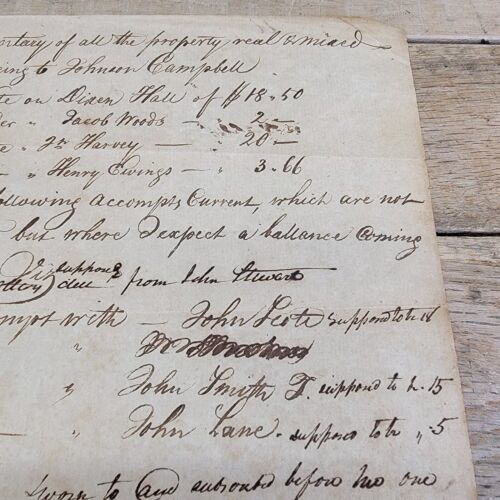 ntary of all the property real & mixed
ging to Johnson Campbell
te on Dixen Hall of $18.50
der " Jacob Woods — " 2 —
te " Jn Harvey — " 20 —
— " Henry Ewings — " 3.66
following accompts Current, which are not
but where I expect a ballance Coming
supposed due from John Stewart
ompt with — John Scote supposed to be 18
"
" John Smith T. supposd to be 15
— " John Lane. supposed to be " 5
Sworn to and subscribed before me one